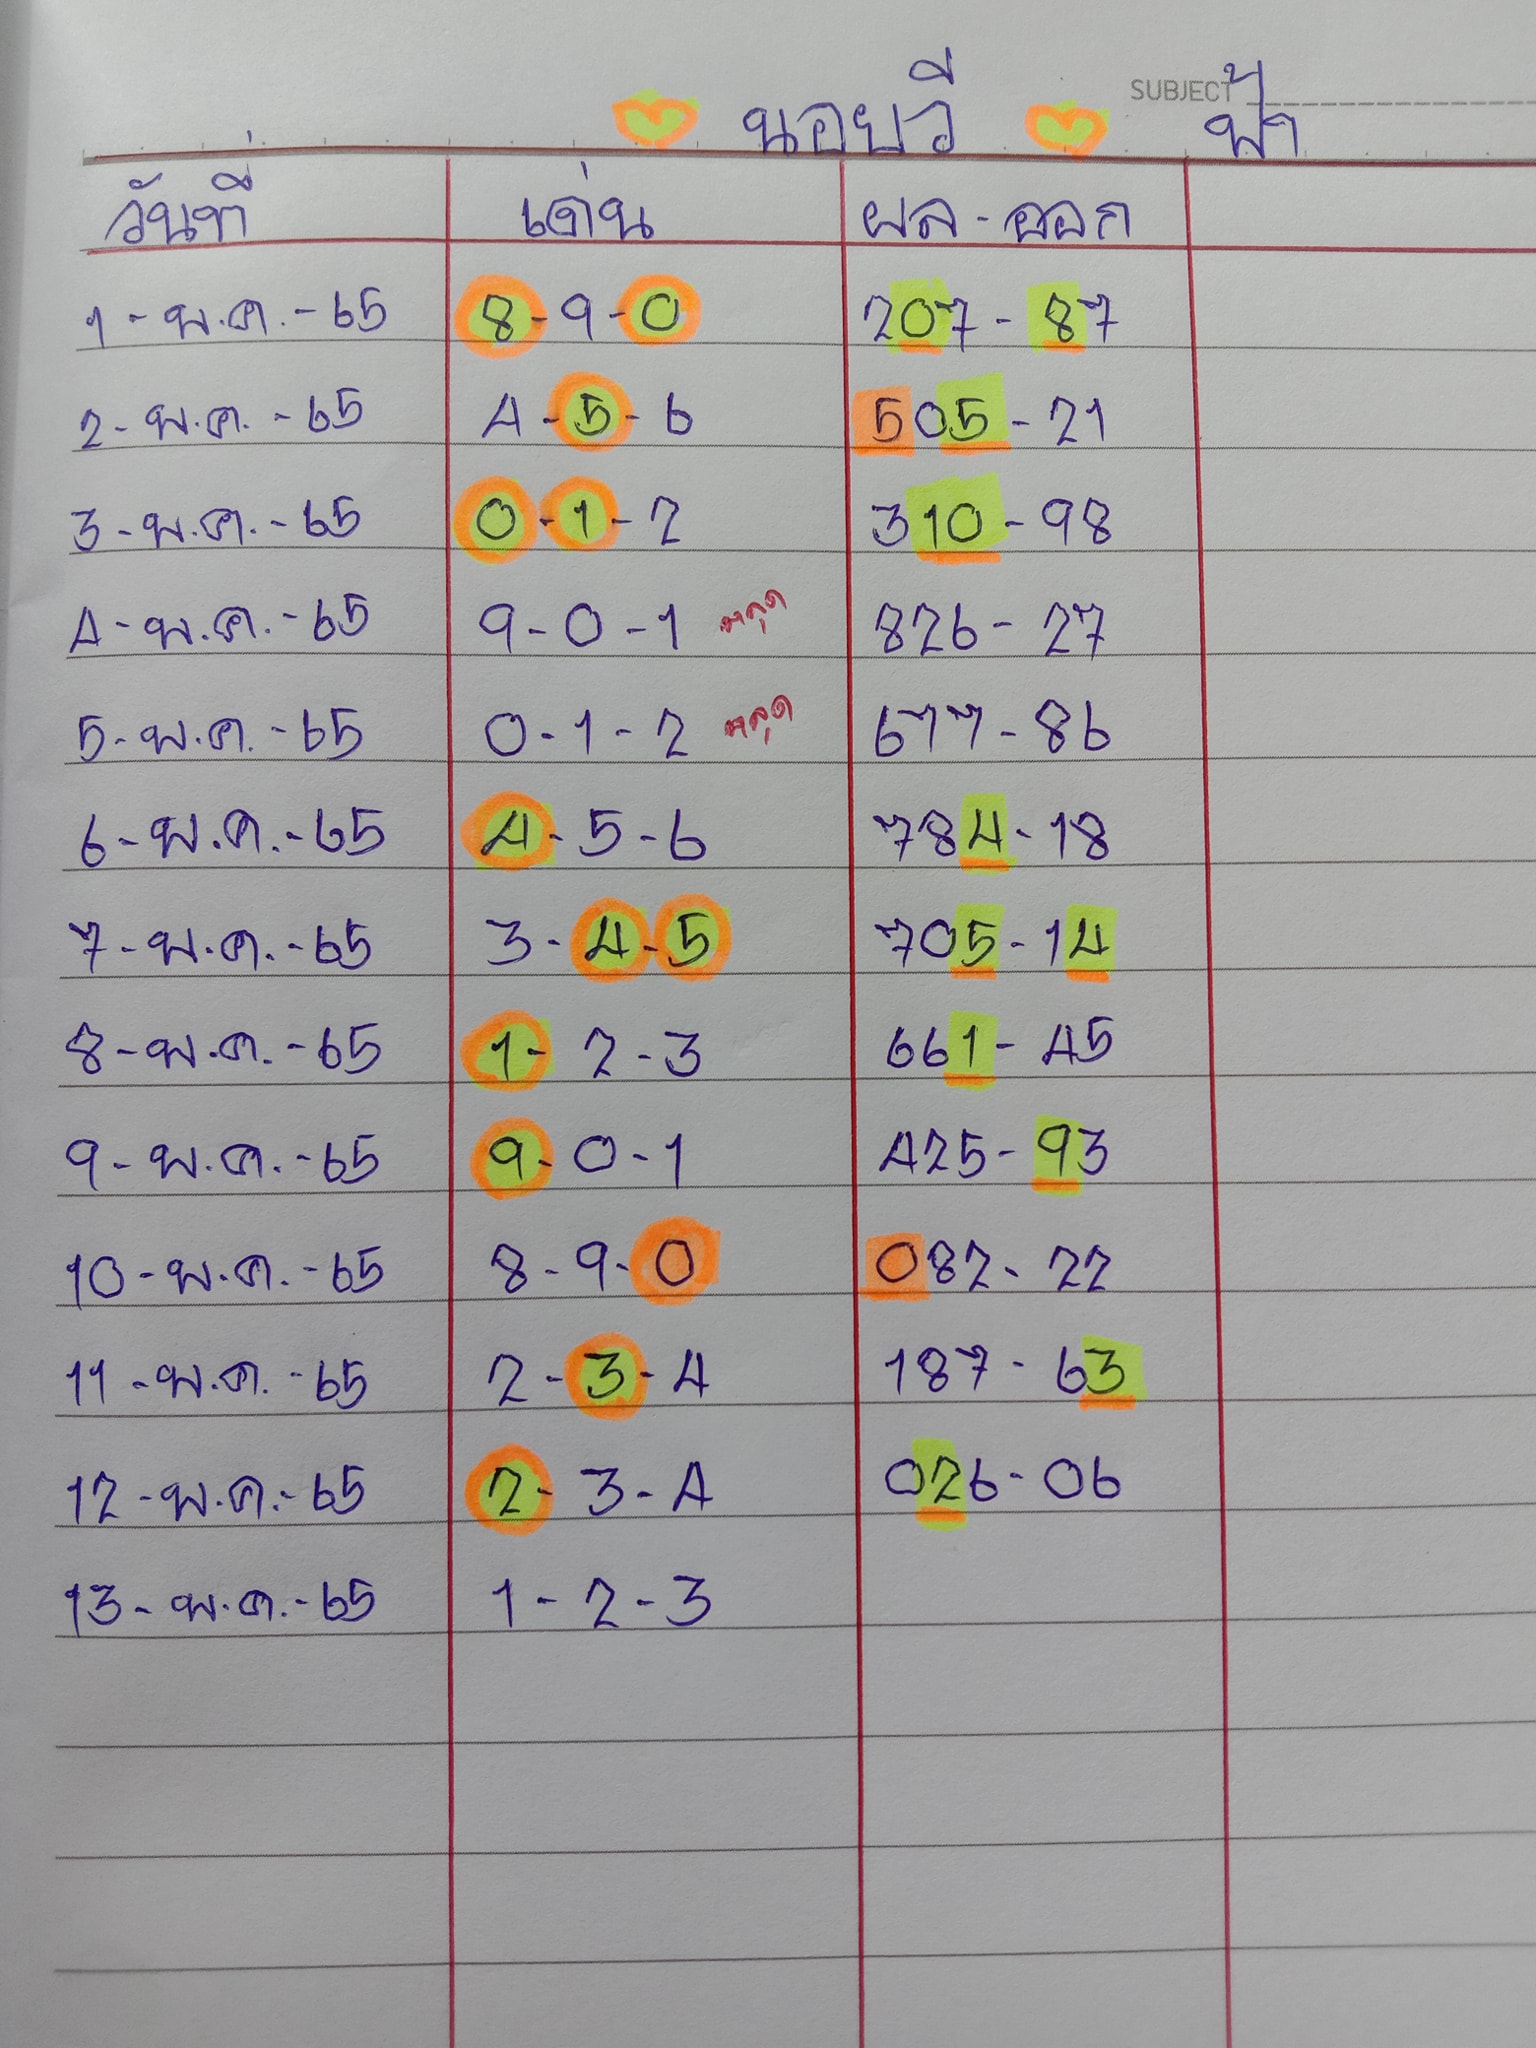 SUBJECT
นอยวี ฟ้า
วันที่ เด่น ผล-ออก
1-พ.ค.-65 8-9-0 207-87
2-พ.ค.-65 4-5-6 505-21
3-พ.ค.-65 0-1-2 310-98
4-พ.ค.-65 9-0-1 หลุด 826-27
5-พ.ค.-65 0-1-2 หลุด 677-86
6-พ.ค.-65 4-5-6 784-18
7-พ.ค.-65 3-4-5 705-14
8-พ.ค.-65 1-2-3 661-45
9-พ.ค.-65 9-0-1 425-93
10-พ.ค.-65 8-9-0 082-22
11-พ.ค.-65 2-3-4 187-63
12-พ.ค.-65 2-3-4 026-06
13-พ.ค.-65 1-2-3